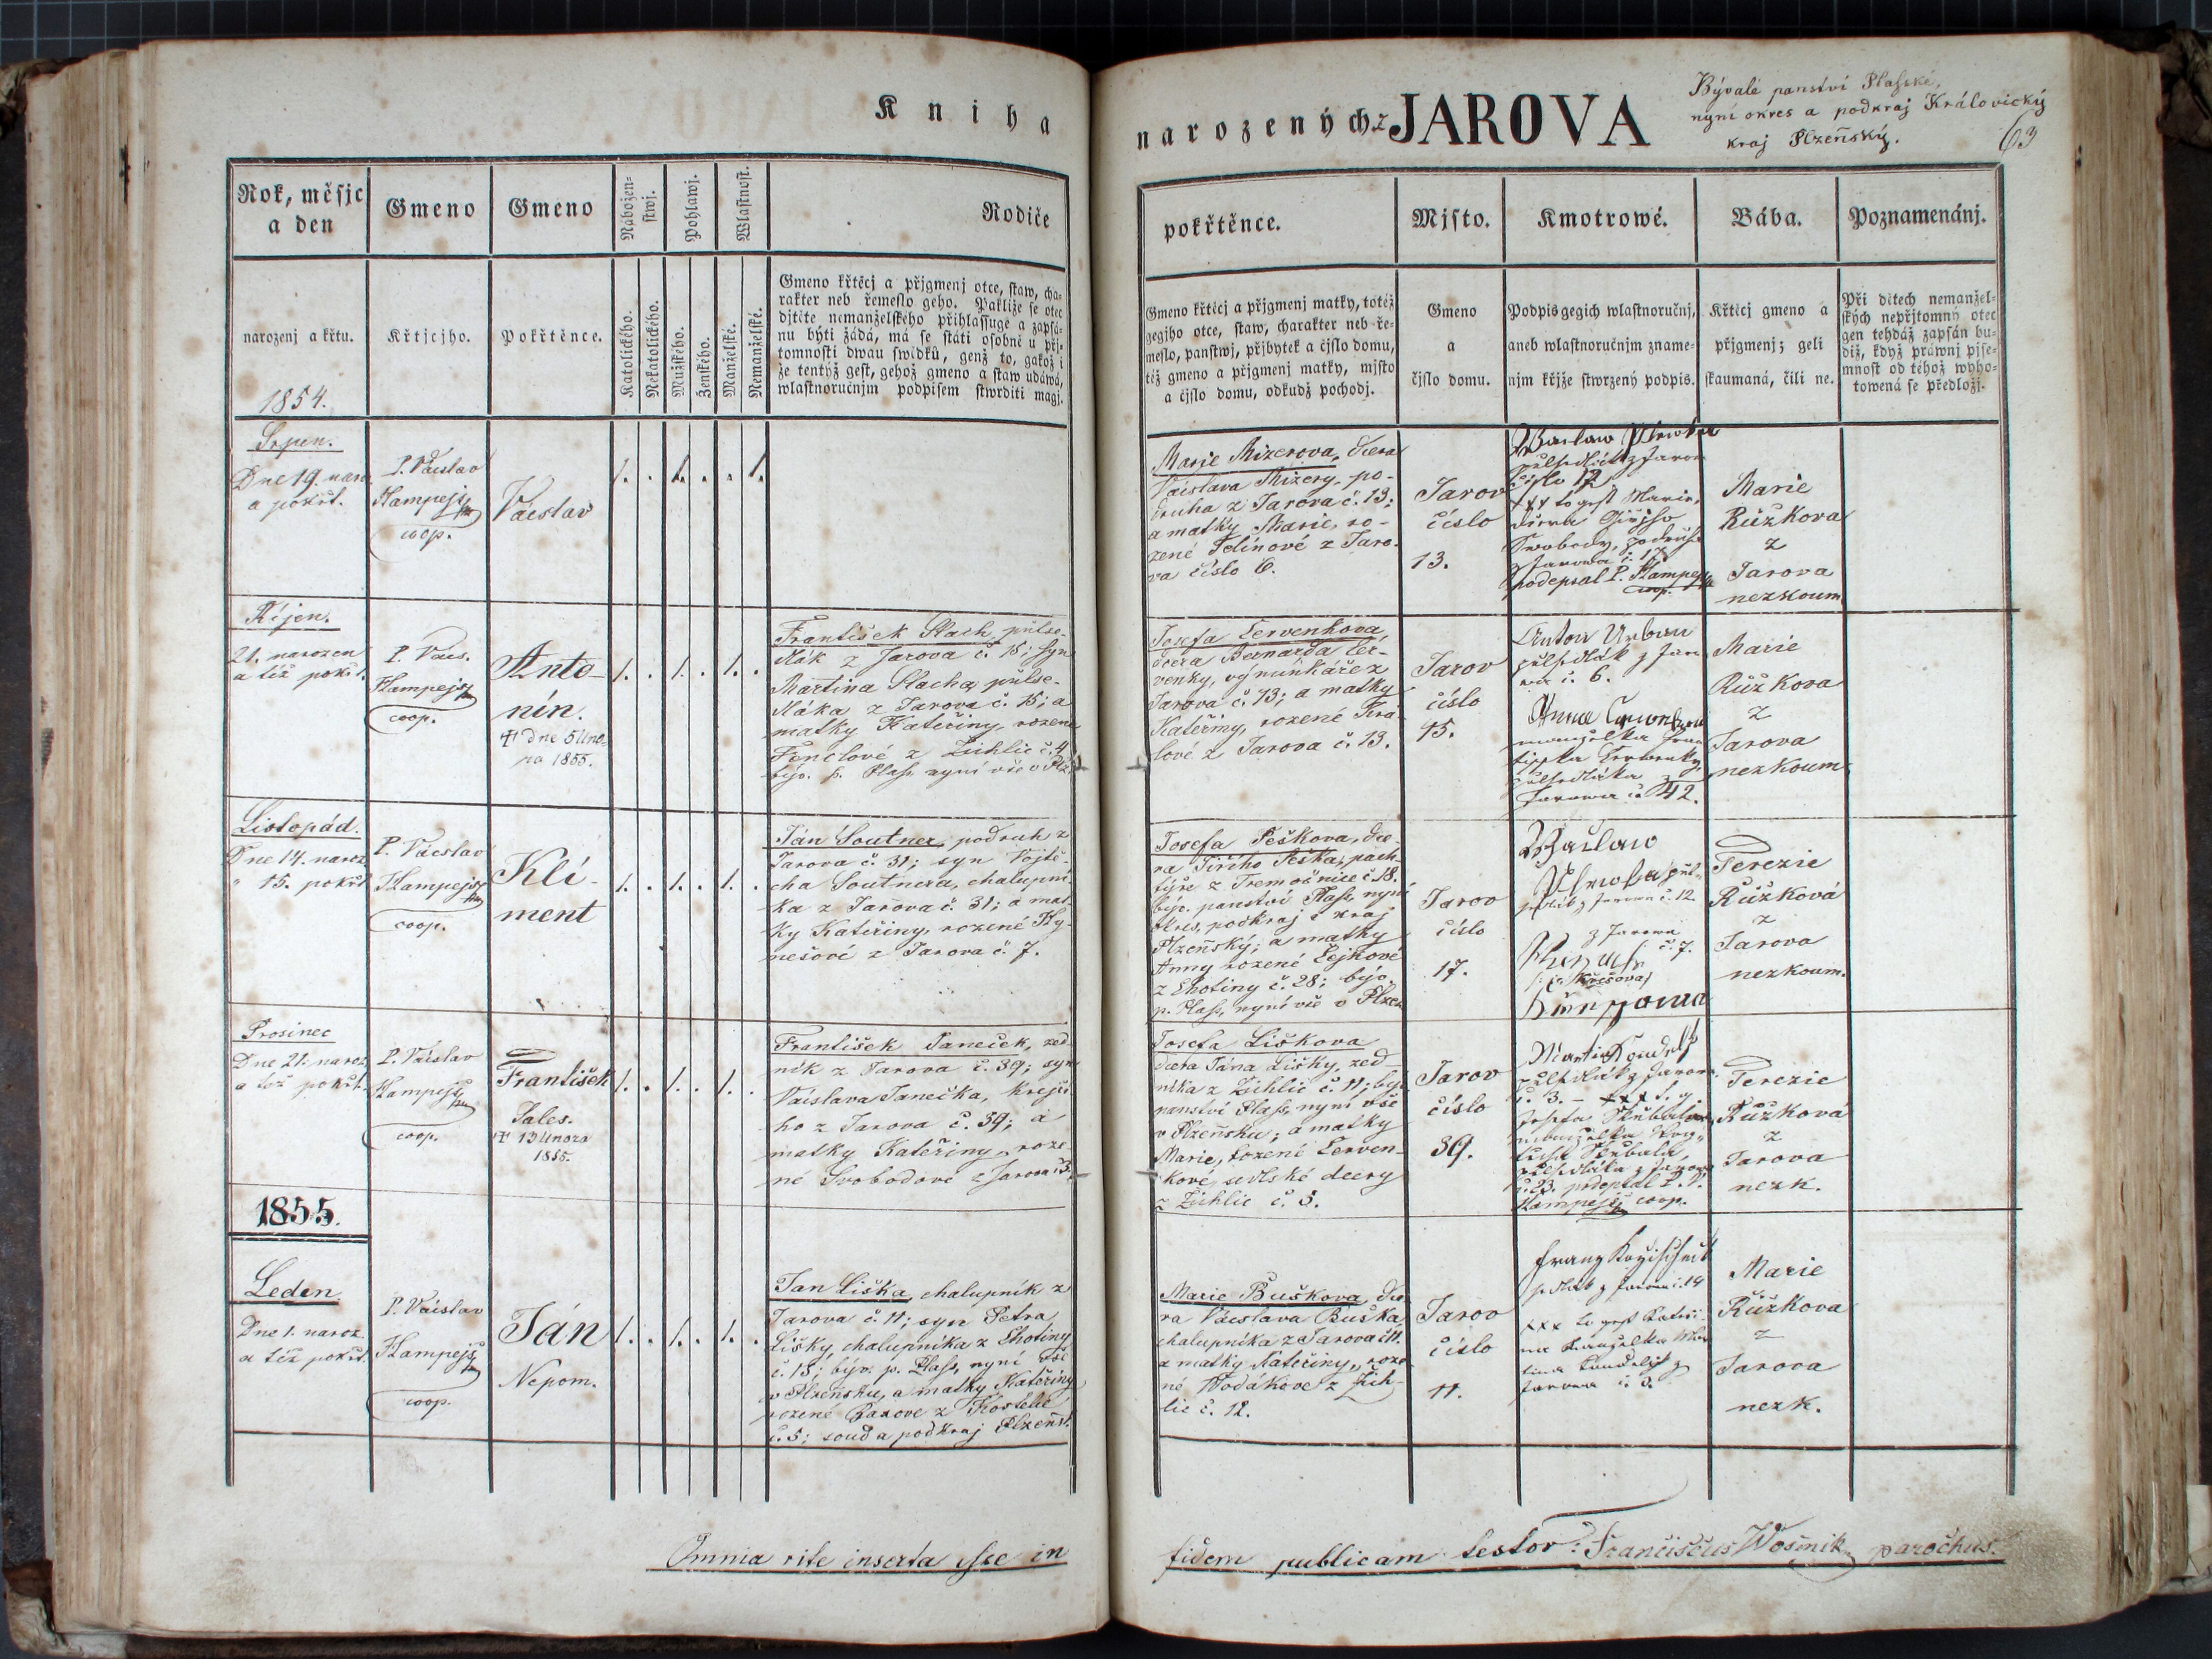 Kniha
narozených z JAROVA
Bývalé panství Plasské,
nyní okres a podkraj Královický
kraj Plzeňský.
63
Rok, měsjc
a den
narozenj a křtu.
1854.
Gmeno
Křtjcjho.
Gmeno
Pokřtěnce.
Nábožen-
stwj.
Katolického.
Nekatolického.
Pohlawj.
Mužského.
Ženského.
Wlastnost.
Manželské.
Nemanželské.
Rodiče
Gmeno křtěcj a přjgmenj otce, staw, cha-
rakter neb řemeslo geho. Pakliže se otec
djtěte nemanželského přihlassuge a zapsá-
nu býti žádá, má se státi osobně u přj-
tomnosti dwau swědků, genž to, gakož i
že tentýž gest, gehož gmeno a staw udáwá,
wlastnoručnjm podpisem stwrditi magj.
pokřtěnce.
Gmeno křtěcj a přjgmenj matky, totéž
gegjho otce, staw, charakter neb ře-
meslo, panstwj, přjbytek a čjslo domu,
též gmeno a přjgmenj matky, mjsto
a čjslo domu, odkudž pochodj.
Mjsto.
Gmeno
a
čjslo domu.
Kmotrowé.
Podpis gegich wlastnoručnj,
aneb wlastnoručnjm zname-
njm křjže stwrzený podpis.
Bába.
Křtěcj gmeno a
přjgmenj; geli
skaumaná, čili ne.
Poznamenánj.
Při dětech nemanžel-
ských nepřjtomný otec
gen tehdáž zapsán bu-
diž, když práwnj pjse-
mnost od téhož wyho-
towená se předložj.
Srpen.
Dne 19. naro.
a pokřt.
P. Václav
Hampejs
coop.
Václav
1. . 1. . . 1.
Marie Mizerova, dcera
Václava Mizery, po-
druha z Jarova č. 13;
a matky Marie, ro-
zené Jelínové z Jaro-
va číslo 6.
Jarov
číslo
13.
Wáclaw
půlsedlák z Jarow
číslo 12
xxx to gest Marie,
dcera Giřjho
Swobody, podruh
z Jarowa č. 17
podepsal P. Hampejs
coop.
Marie
Růžkova
z
Jarova
nezkoum.
Říjen.
21. narozen
a též pokřt.
P. Václ.
Hampejs
coop.
Anto-
nín.
† dne 5 Úno-
ra 1855.
1. . 1. . 1. .
František Plach, půlse-
dlák z Jarova č. 15; syn
Martina Placha, půlse-
dláka z Jarova č. 15; a
matky Kateřiny, rozené
Fenclové z Žichlic č. 4
býv. p. Plass, nyní vše v Plz.
Josefa Červenkova,
dcera Bernarda Čer-
venky, výminkáře z
Jarova č. 13; a matky
Kateřiny, rozené Krá-
lové z Jarova č. 13.
Jarov
číslo
15.
Anton Urban
půlsedlák z Jaro
wa č. 6.
Anna
manželka Fran
tisska Czerwenky,
půlsedláka z
Jarowa č. 42.
Marie
Růžkova
z
Jarova
nezkoum.
Listopád.
Dne 14. naroz.
" 15. pokřt.
P. Václav
Hampejs
coop.
Kli-
ment
1. . 1. . 1. .
Ján Soutner, podruh z
Jarova č. 31; syn Vojtě-
cha Soutnera, chalupní-
ka z Jarova č. 31; a mat-
ky Kateřiny, rozené Hy-
nešové z Jarova č. 7.
Josefa Peškova, dce-
ra Jiřího Peška, pach-
týře z Třemošnice č. 18.
býv. panství Plass, nyní
okres, podkraj i kraj
Plzeňský; a matky
Anny rozené Čejkové
z Lhotiny č. 28; býv.
p. Plass, nyní vše v Plzeň.
Jarov
číslo
17.
Wáclaw
půl-
sedlák z Jarowa č. 12
z Jarowa
č. 7.
Terezie
Růžková
z
Jarova
nezkoum.
Prosinec
Dne 21. naroz.
a též pokřt.
P. Václav
Hampejs
coop.
František
Sales.
† 13 Února
1855.
1. . 1. . 1. .
František Janeček, zed-
ník z Jarova č. 39; syn
Václava Janečka, krejčí-
ho z Jarova č. 39; a
matky Kateřiny, roze-
né Svobodové z Jarova č. 3.
Josefa Liškova
dcera Jána Lišky, zed-
níka z Žichlic č. 11; býv.
panství Plass, nyní vše
v Plzeňsku; a matky
Marie, rozené Červen-
kové, sedlské dcery
z Žichlic č. 3.
Jarov
číslo
39.
Martin
půlsedlák z Jarowa
č. 3. – xxx t. g.
Josefa
manželka
půlsedláka z Jarowa
č. 23. podepsal P. V.
Hampejs coop.
Terezie
Růžková
z
Jarova
nezk.
1855.
Leden.
Dne 1. naroz.
a též pokřt.
P. Václav
Hampejs
coop.
Ján
Nepom.
1. . 1. . 1. .
Jan Liška, chalupník z
Jarova č. 11; syn Petra
Lišky, chalupníka z Lhotiny
č. 13; býv. p. Plass, nyní vše
v Plzeňsku, a matky Kateřiny
rozené Baxove z Kostelce
č. 5; soud a podkraj Plzeňsk.
Marie Buškova, dce-
ra Václava Buška,
chalupníka z Jarova č. 11.
a matky Kateřiny, roze-
né Wodákove z Žich-
lic č. 12.
Jarov
číslo
11.
Franz
sedlák z Jarowa č. 14
xxx to gest Kateři-
na manželka Mar
tina
Jarowa č. 3.
Marie
Růžkova
z
Jarova
nezk.
Omnia rite inserta esse in
fidem publicam testor: Franciscus Wošmik, parochus.